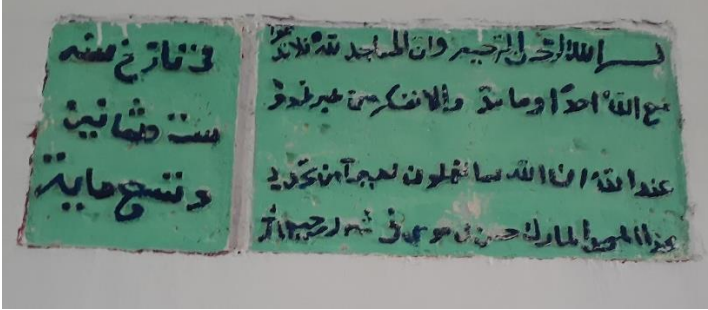 بسم الله الرحمن الرحيم وان المساجد لله فلا تدعوا
مع الله احدا وما تقدموا لانفسكم من خير تجدوه
عند الله ان الله بما تعملون بصير أمر بتجديد
هذا المسجد المبارك حسن بن موسى فى شهر رجب
فى تاريخ سنه
ست ثمانين
وتسع ماية